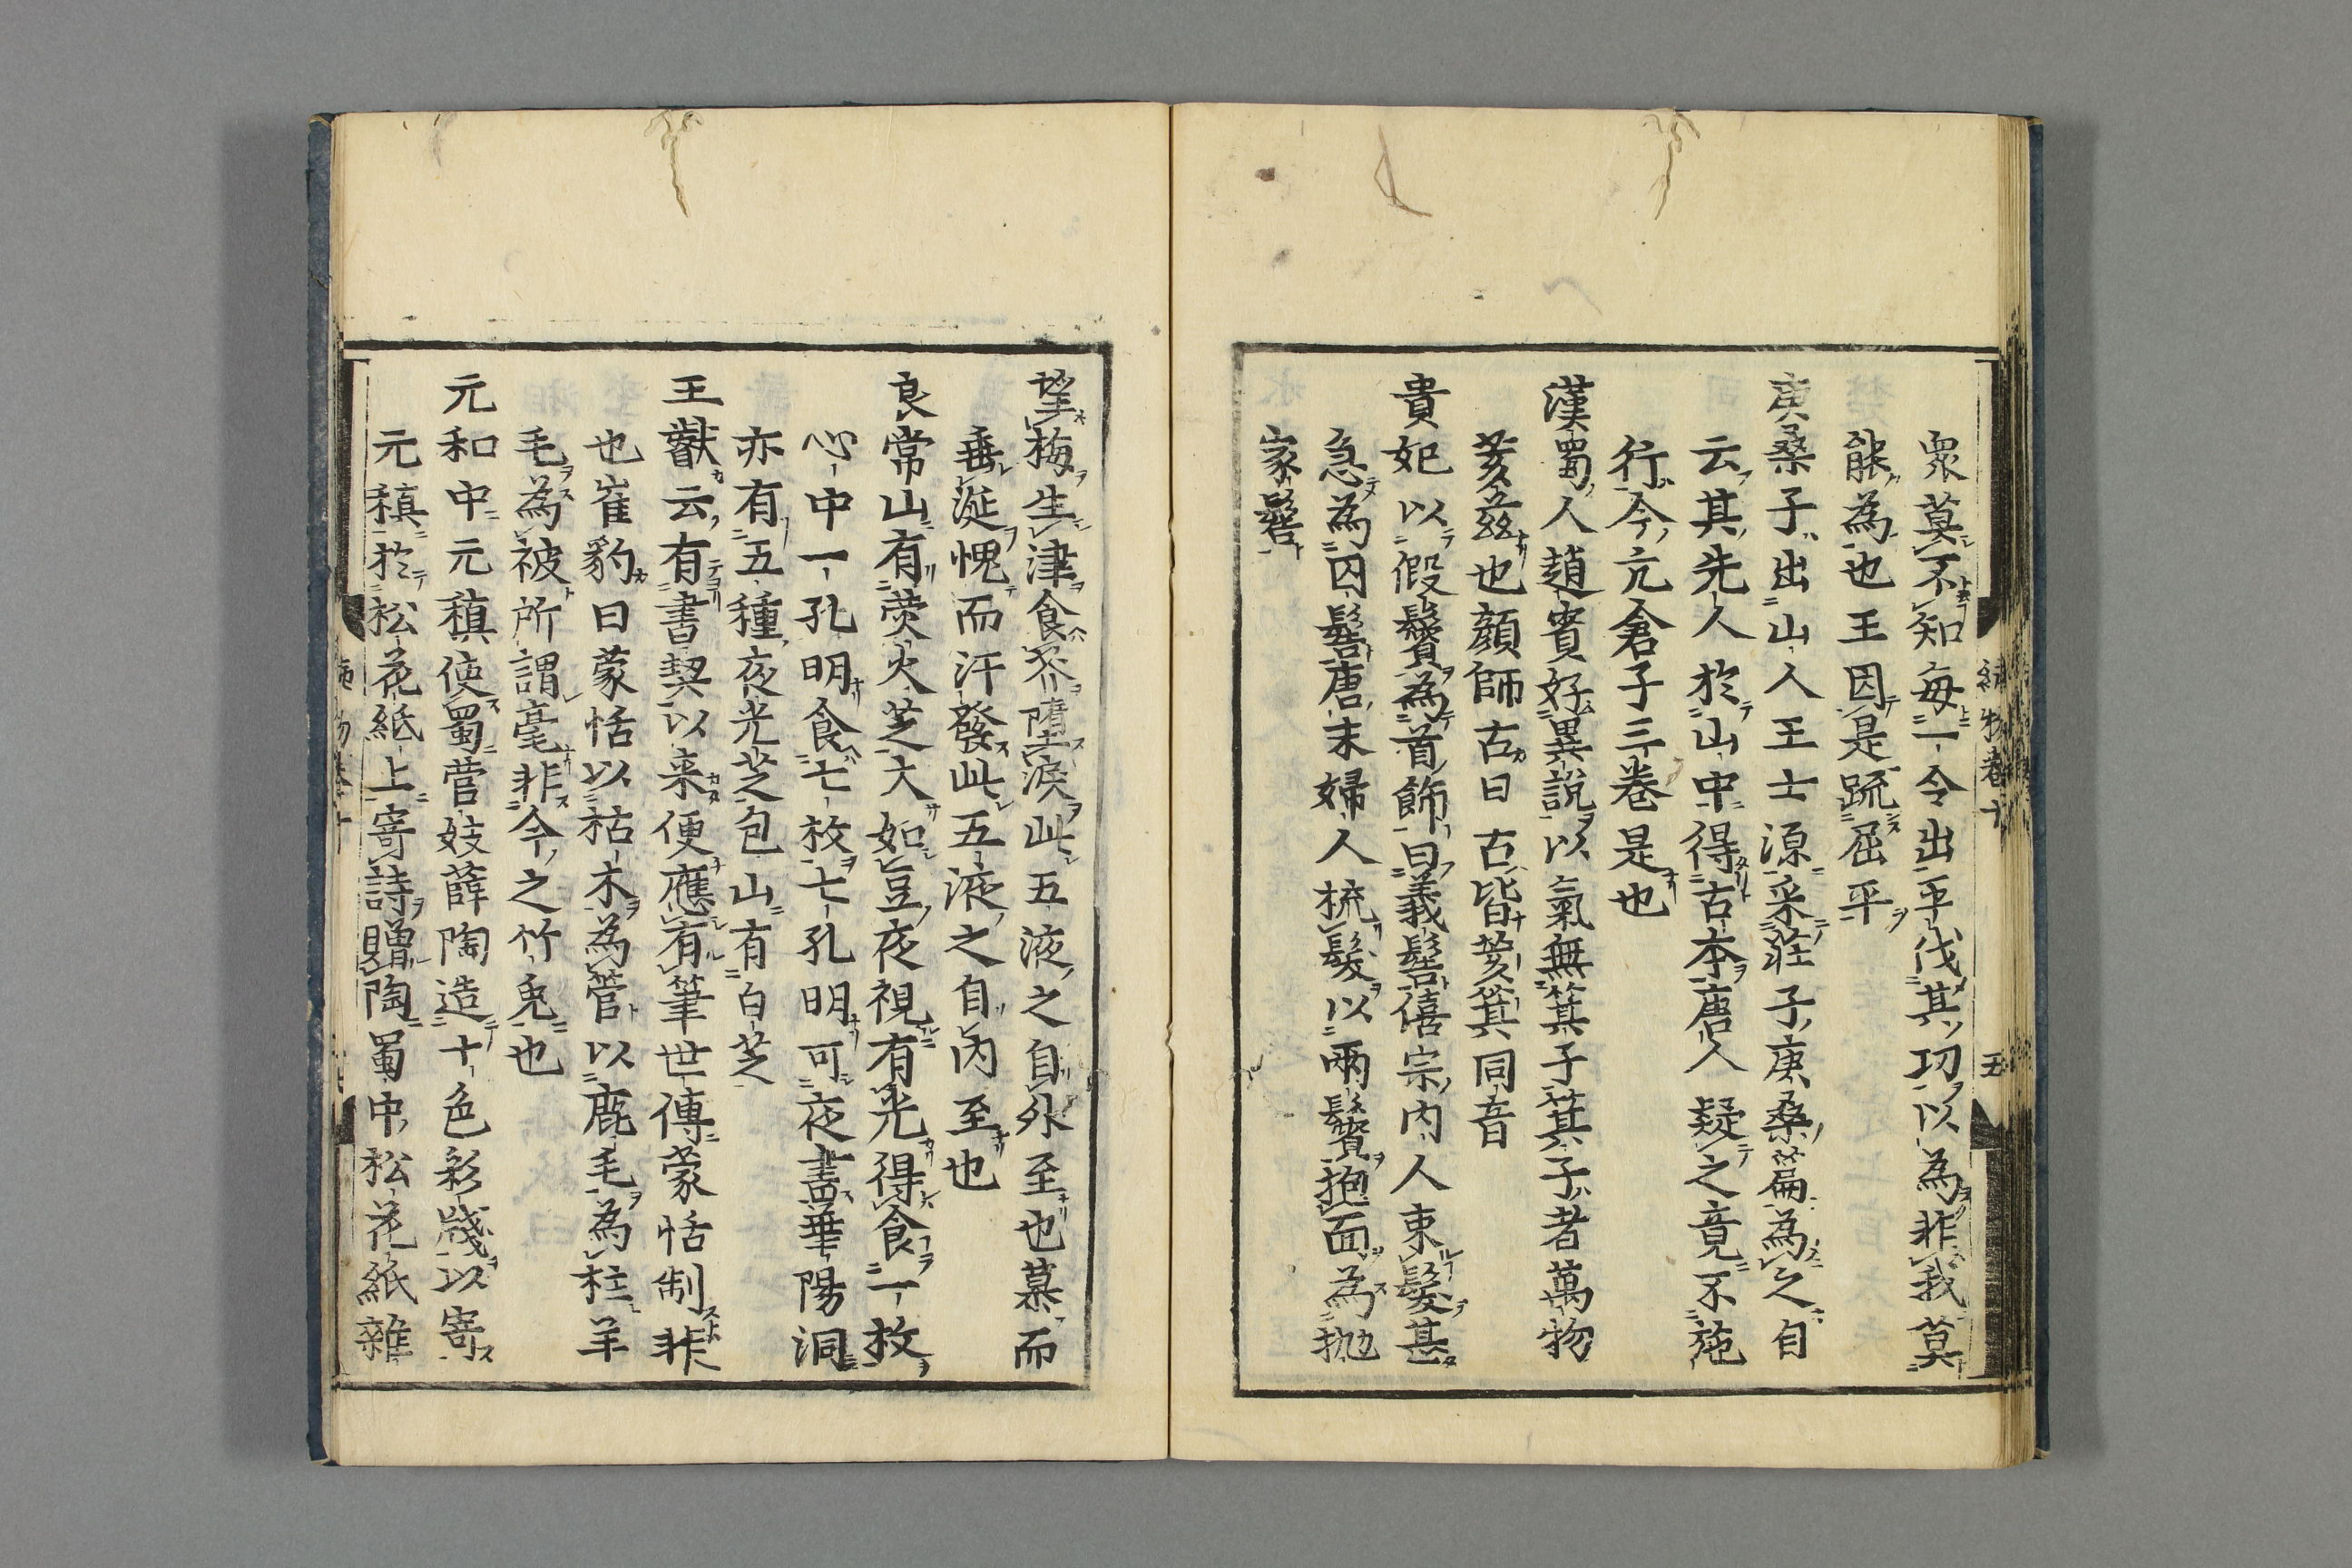 續物卷十
五
衆莫不知每一令出平伐其功以為非我莫
能為也王因是疏屈平
庚桑子出山人王士源采莊子庚桑篇為之自
云其先人於山中得古本唐人疑之竟不施
行今亢倉子三卷是也
漢蜀人趙賓好異說以氣無箕子箕子者萬物
荄茲也顏師古曰古皆荄箕同音
貴妃以假鬢為首飾曰義髻僖宗内人束髮甚
急為囚髻唐末婦人梳髮以兩鬢抱面為抛
家髻
望梅生津食芥墮淚此五液之自外至也慕而
垂涎愧而汗發此五液之自内至也
良常山有熒火芝大如豆夜視有光得食一枚
心中一孔明食七枚七孔明可夜書華陽洞
亦有五種夜光芝包山有白芝
王獻云有書契以来便應有筆世傳蒙恬制非
也崔豹曰蒙恬以枯木為管以鹿毛為柱羊
毛為被所謂毫非今之竹兎也
元和中元稹使蜀營妓薛陶造十色彩牋以寄
元稹於松花紙上寄詩贈陶蜀中松花紙雜